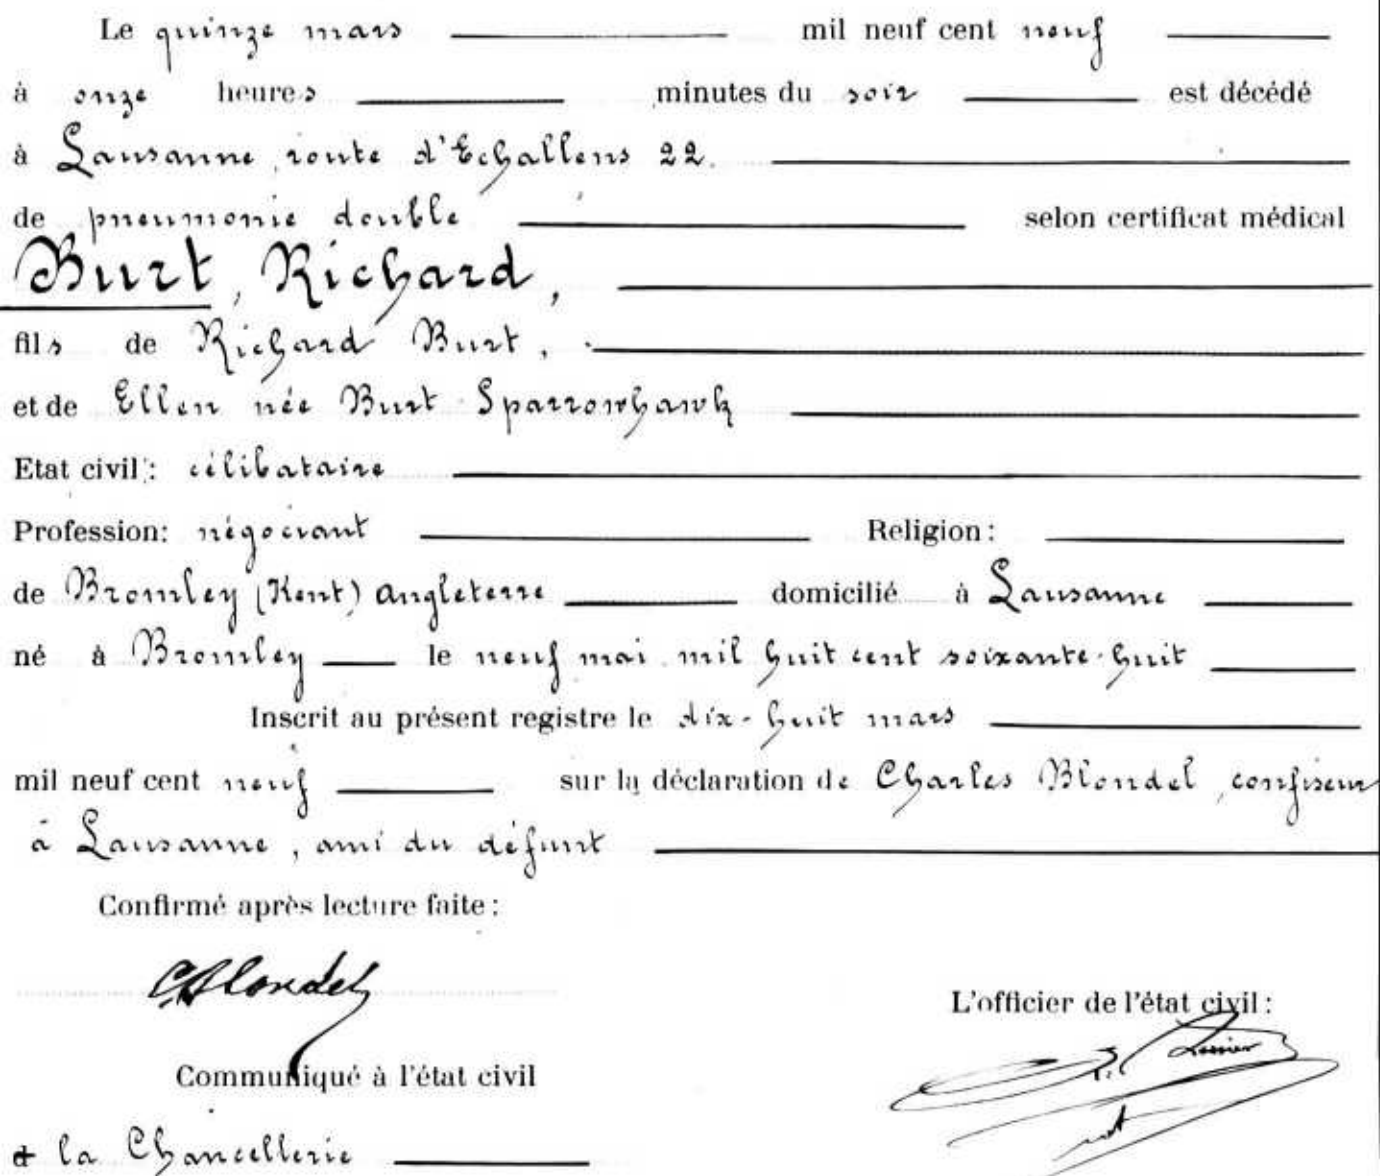 Le quinze mars mil neuf cent neuf
à onze heures minutes du soir est décédé
à Lausanne, route d'Echallens 22.
de pneumonie double selon certificat médical
Burt, Richard,
fils de Richard Burt,
et de Ellen née Burt Sparrowhawk
Etat civil: célibataire
Profession: négociant Religion:
de Bromley (Kent) Angleterre domicilié à Lausanne
né à Bromley le neuf mai mil huit cent soixante-huit
Inscrit au présent registre le dix-huit mars
mil neuf cent neuf sur la déclaration de Charles Blondel, confiseur
à Lausanne, ami du défunt
Confirmé après lecture faite:
C. Blondel
L'officier de l'état civil:
Communiqué à l'état civil
à la Chancellerie